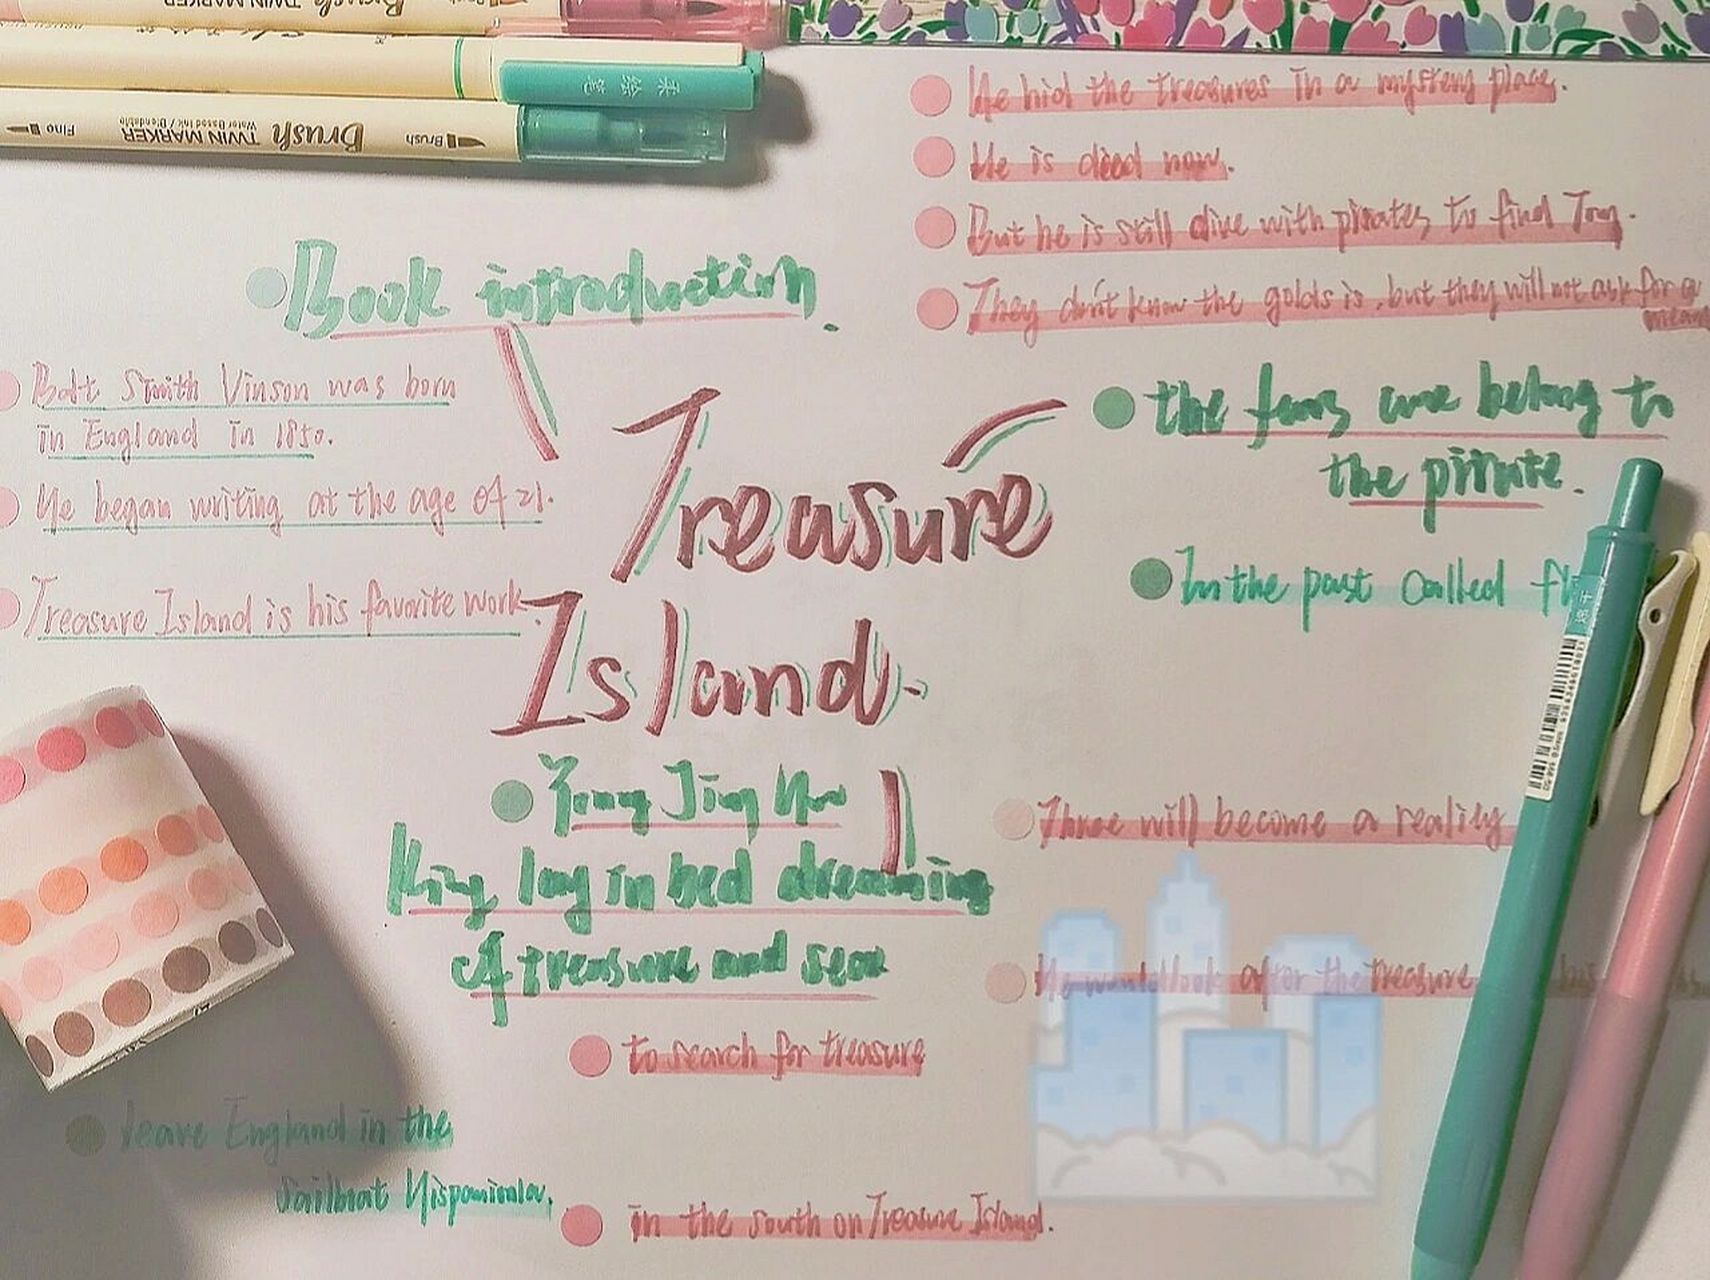 Brush TWIN MARKER Brush
Water Based Ink / Blendable
Fine
彩绘笔
He hid the treasures in a mystery place.
He is dead now.
But he is still alive with pirates to find Tom.
They don't know the golds is, but they will not ask for a
Book introduction.
Smith Vinson was born
in England in 1850.
He began writing at the age of 21.
Treasure Island is his favorite work.
Treasure
Island.
the are belong to
the pirate.
In the past called
Jing
King lay in bed dreaming
A treasure and sea
to search for treasure
leave England in the
Sailboat
in the south on Treasure Island.
Three will become a reality
He would look after the treasure